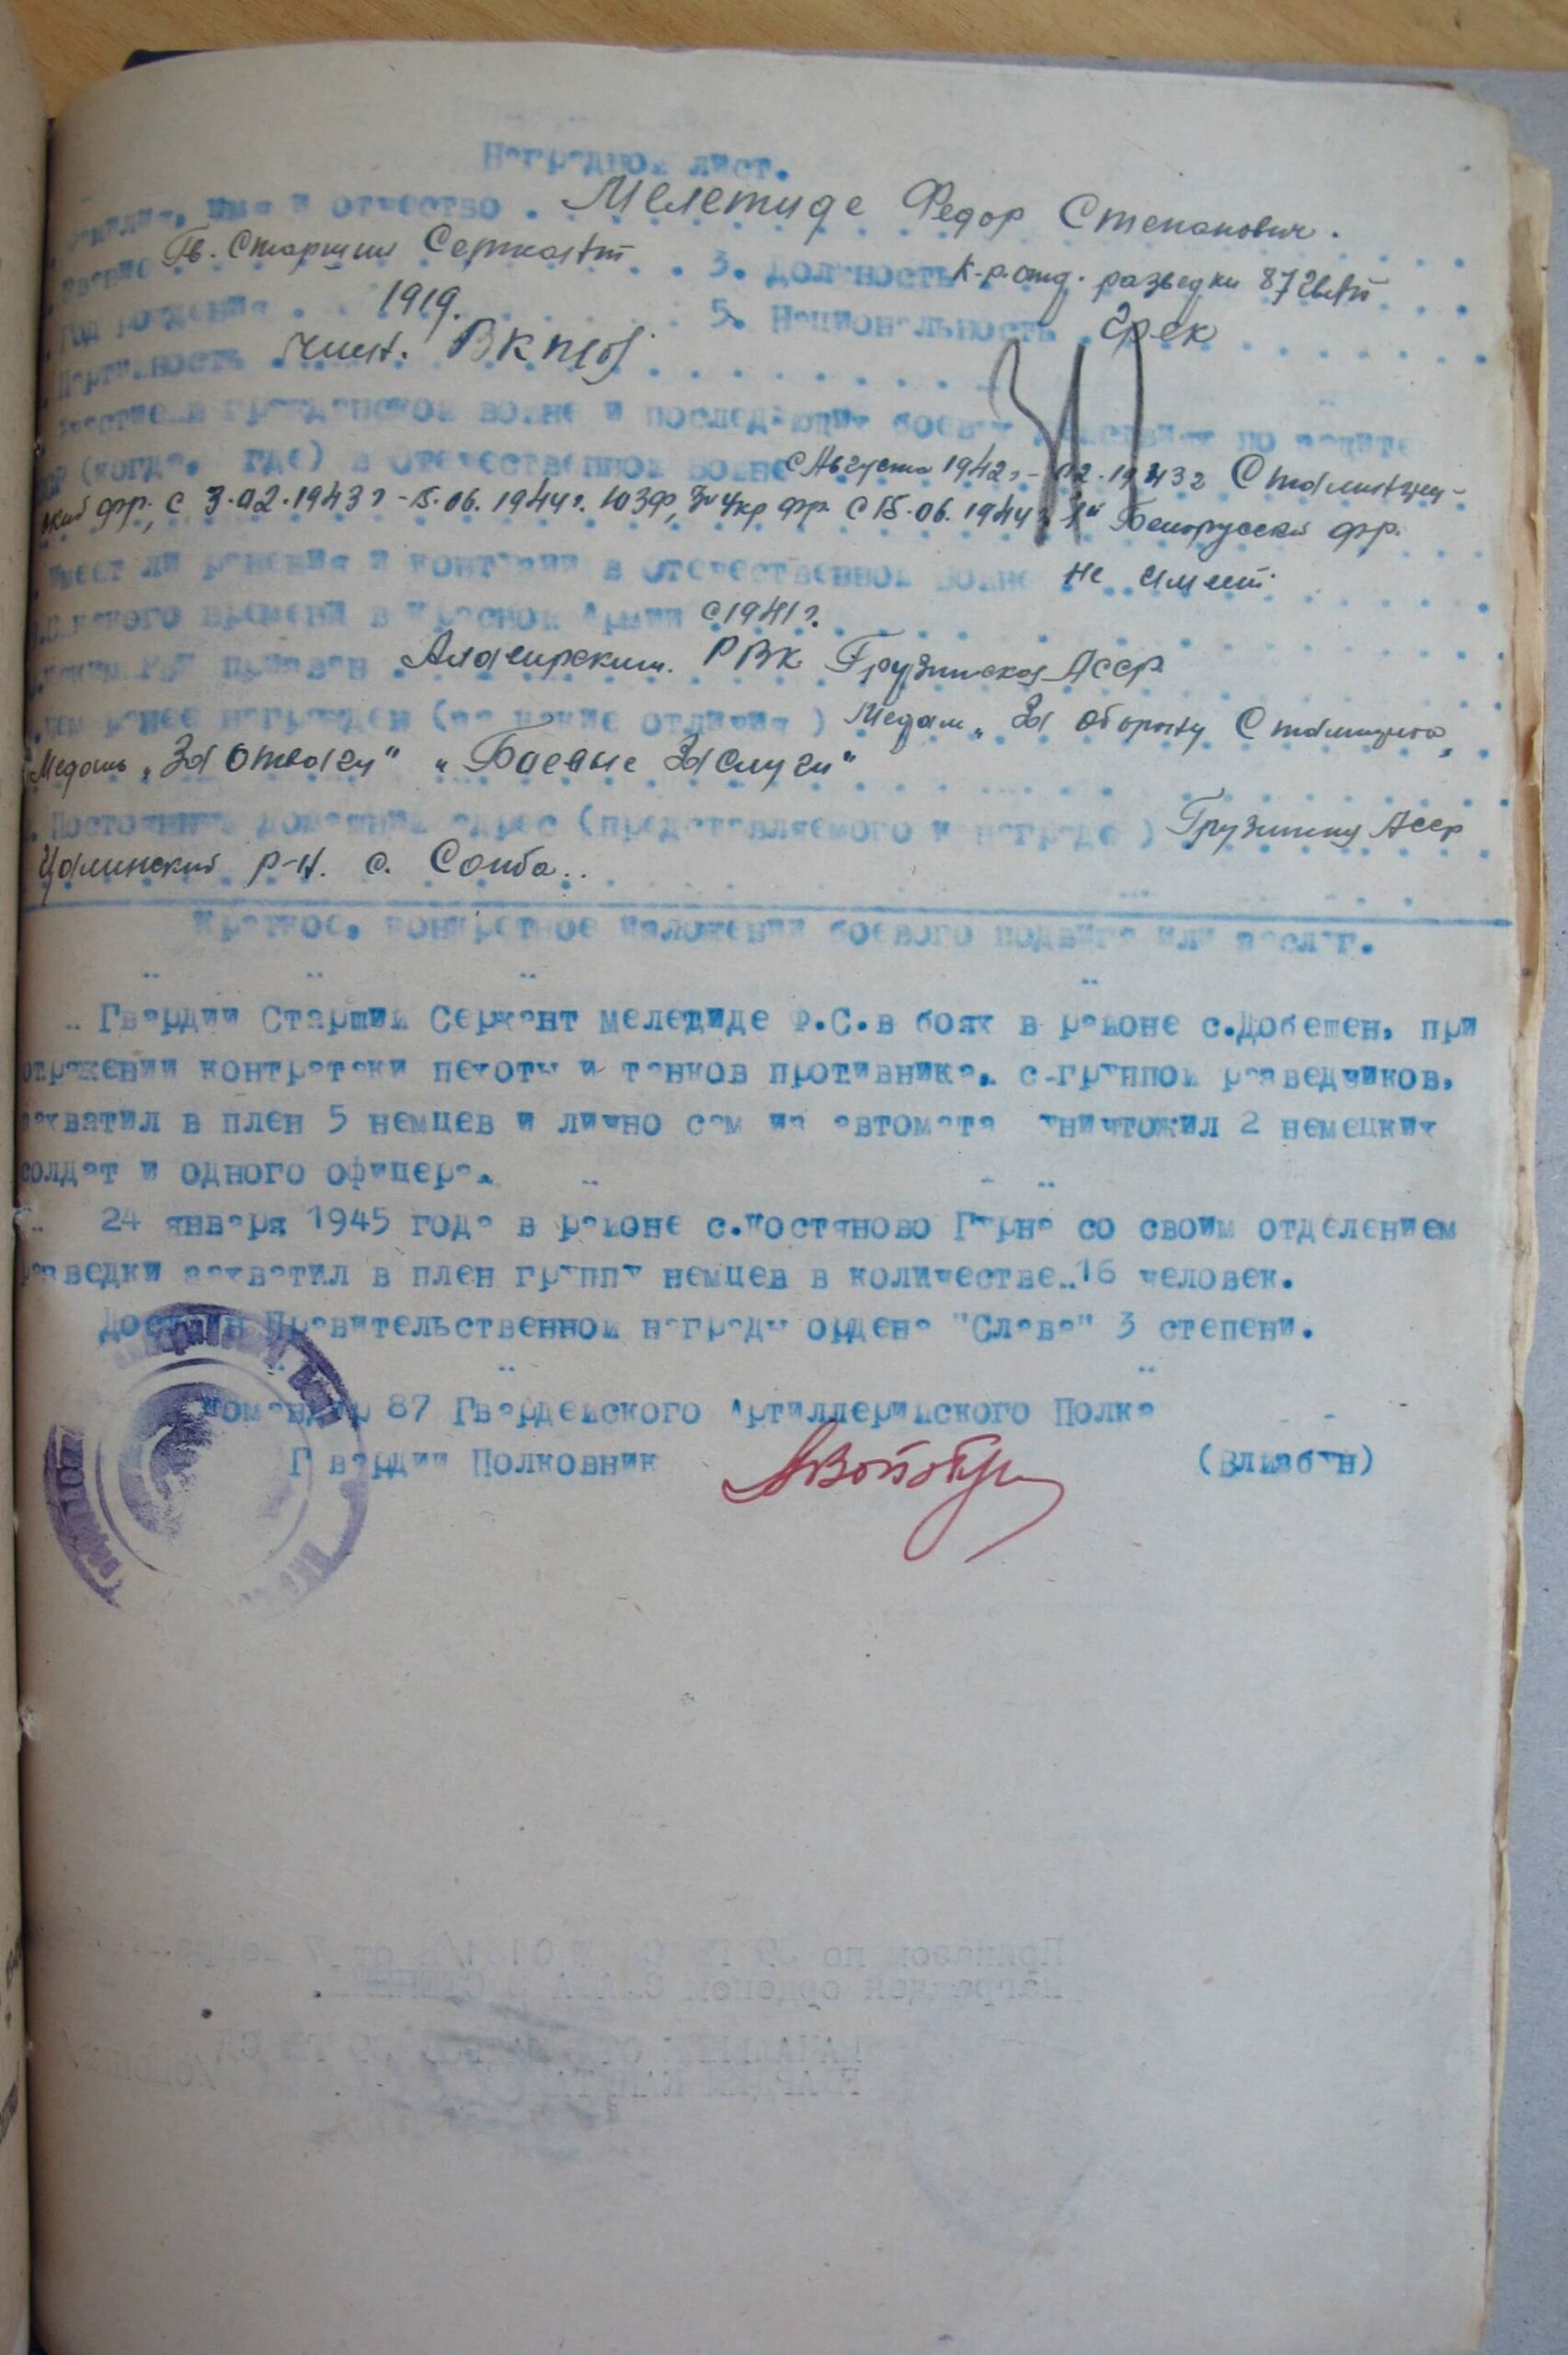 Наградной лист.
имя и отчество . Мелетиде Федор Степанович.
Звание Гв. Старший Сержант . 3. Должность К-р. отд. разведки 87 Гв АП
Год рождения . 1919. 5. Национальность . Грек
Партийность . член. ВКП(б)
Участие в гражданской войне и последующих боевых действиях по защите
(когда, где) в отечественной войне С Августа 1942 г - 02.1943 г Сталинград-
ский фр., с 3.02.1943 г - 15.06.1944 г. ЮЗФ, 3й Укр фр. С 15.06.1944 г 1й Белорусский фр.
Имеет ли ранения и контузии в отечественной войне Не имеет.
какого времени в Красной Армии с 1941 г.
Каким РВК призван Алагирским. РВК Грузинская АССР
Чем ранее награжден (за какие отличия) Медаль „За оборону Сталинграда,
Медаль „За Отвагу" „Боевые Заслуги"
Постоянный домашний адрес (представляемого к награде) Грузинская АССР
Цалинский р-н. с.
Краткое, конкретное изложении боевого подвига или заслуг.
Гвардии Старший Сержант Мелетиде Ф.С. в боях в районе с.Добешен, при
отражении контратаки пехоты и танков противника, с-группой разведчиков,
захватил в плен 5 немцев и лично сам из автомата уничтожил 2 немецких
солдат и одного офицера.
24 января 1945 года в районе с.Костяново Гурна со своим отделением
разведки захватил в плен группу немцев в количестве 16 человек.
Достоин Правительственной награды ордена "Слава" 3 степени.
Командир 87 Гвардейского Артиллерийского Полка
Гвардии Полковник